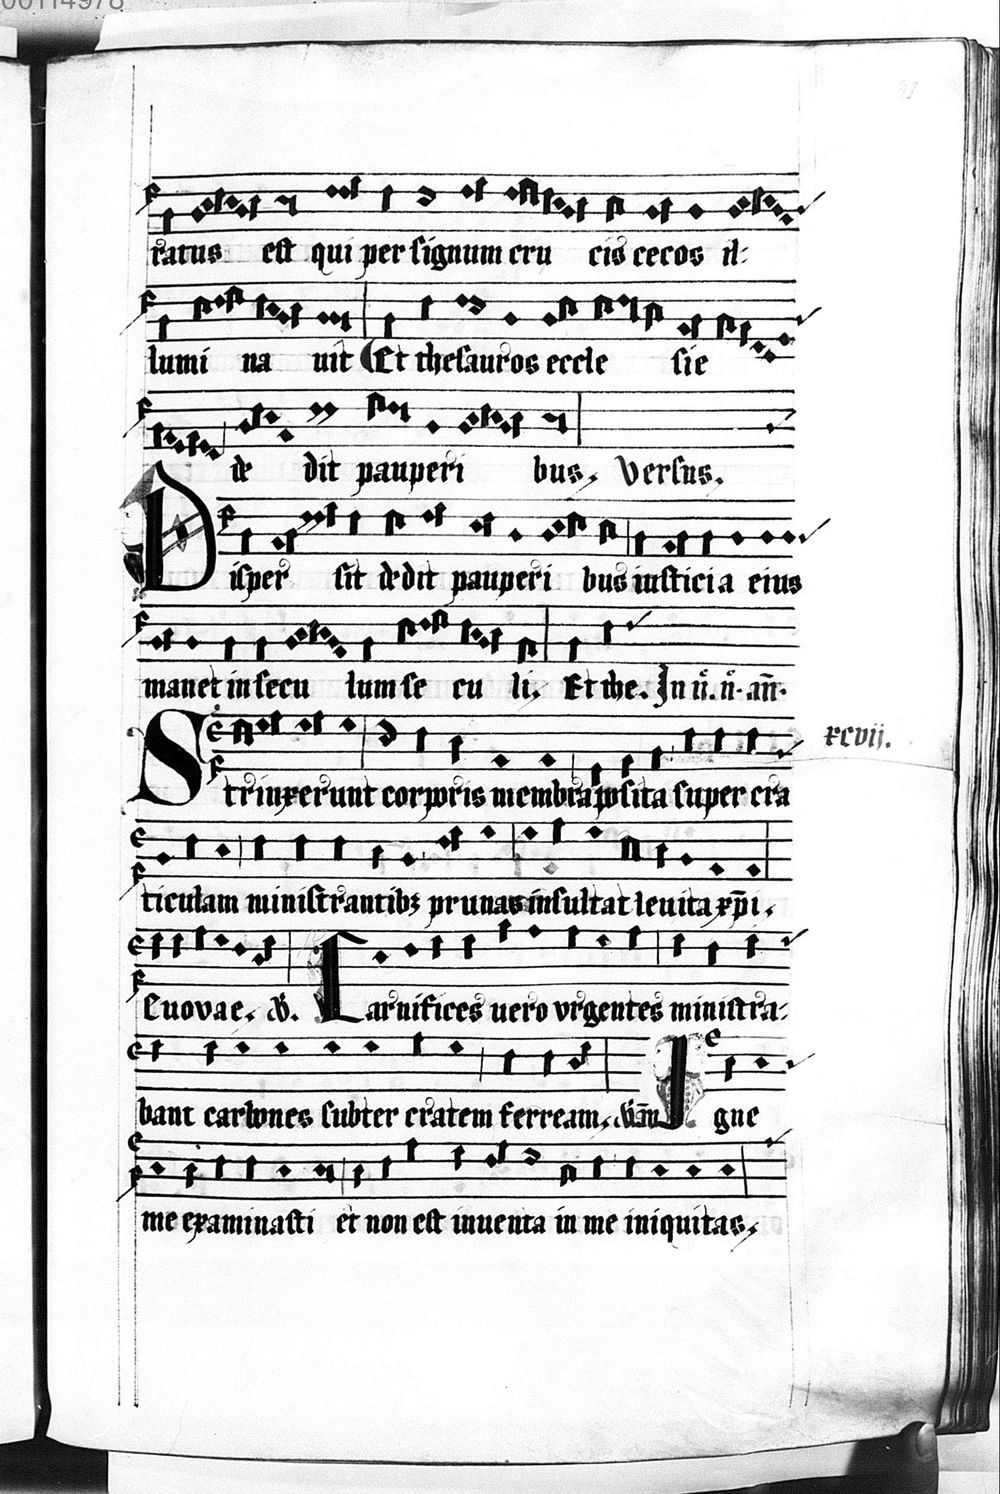 00114978
ratus est qui per signum cru cis cecos il-
lumi na uit Et thesauros eccle sie
de dit pauperi bus. Versus.
Disper sit dedit pauperi bus iusticia eius
manet in secu lum se cu li. Et the. In
xcvij.
Strinxerunt corporis membra posita super cra
ticulam ministrantibꝫ prunas insultat leuita xp̄i.
Euovae. Carnifices uero vrgentes ministra-
bant carbones subter cratem ferream. Igne
me examinasti et non est inuenta in me iniquitas.